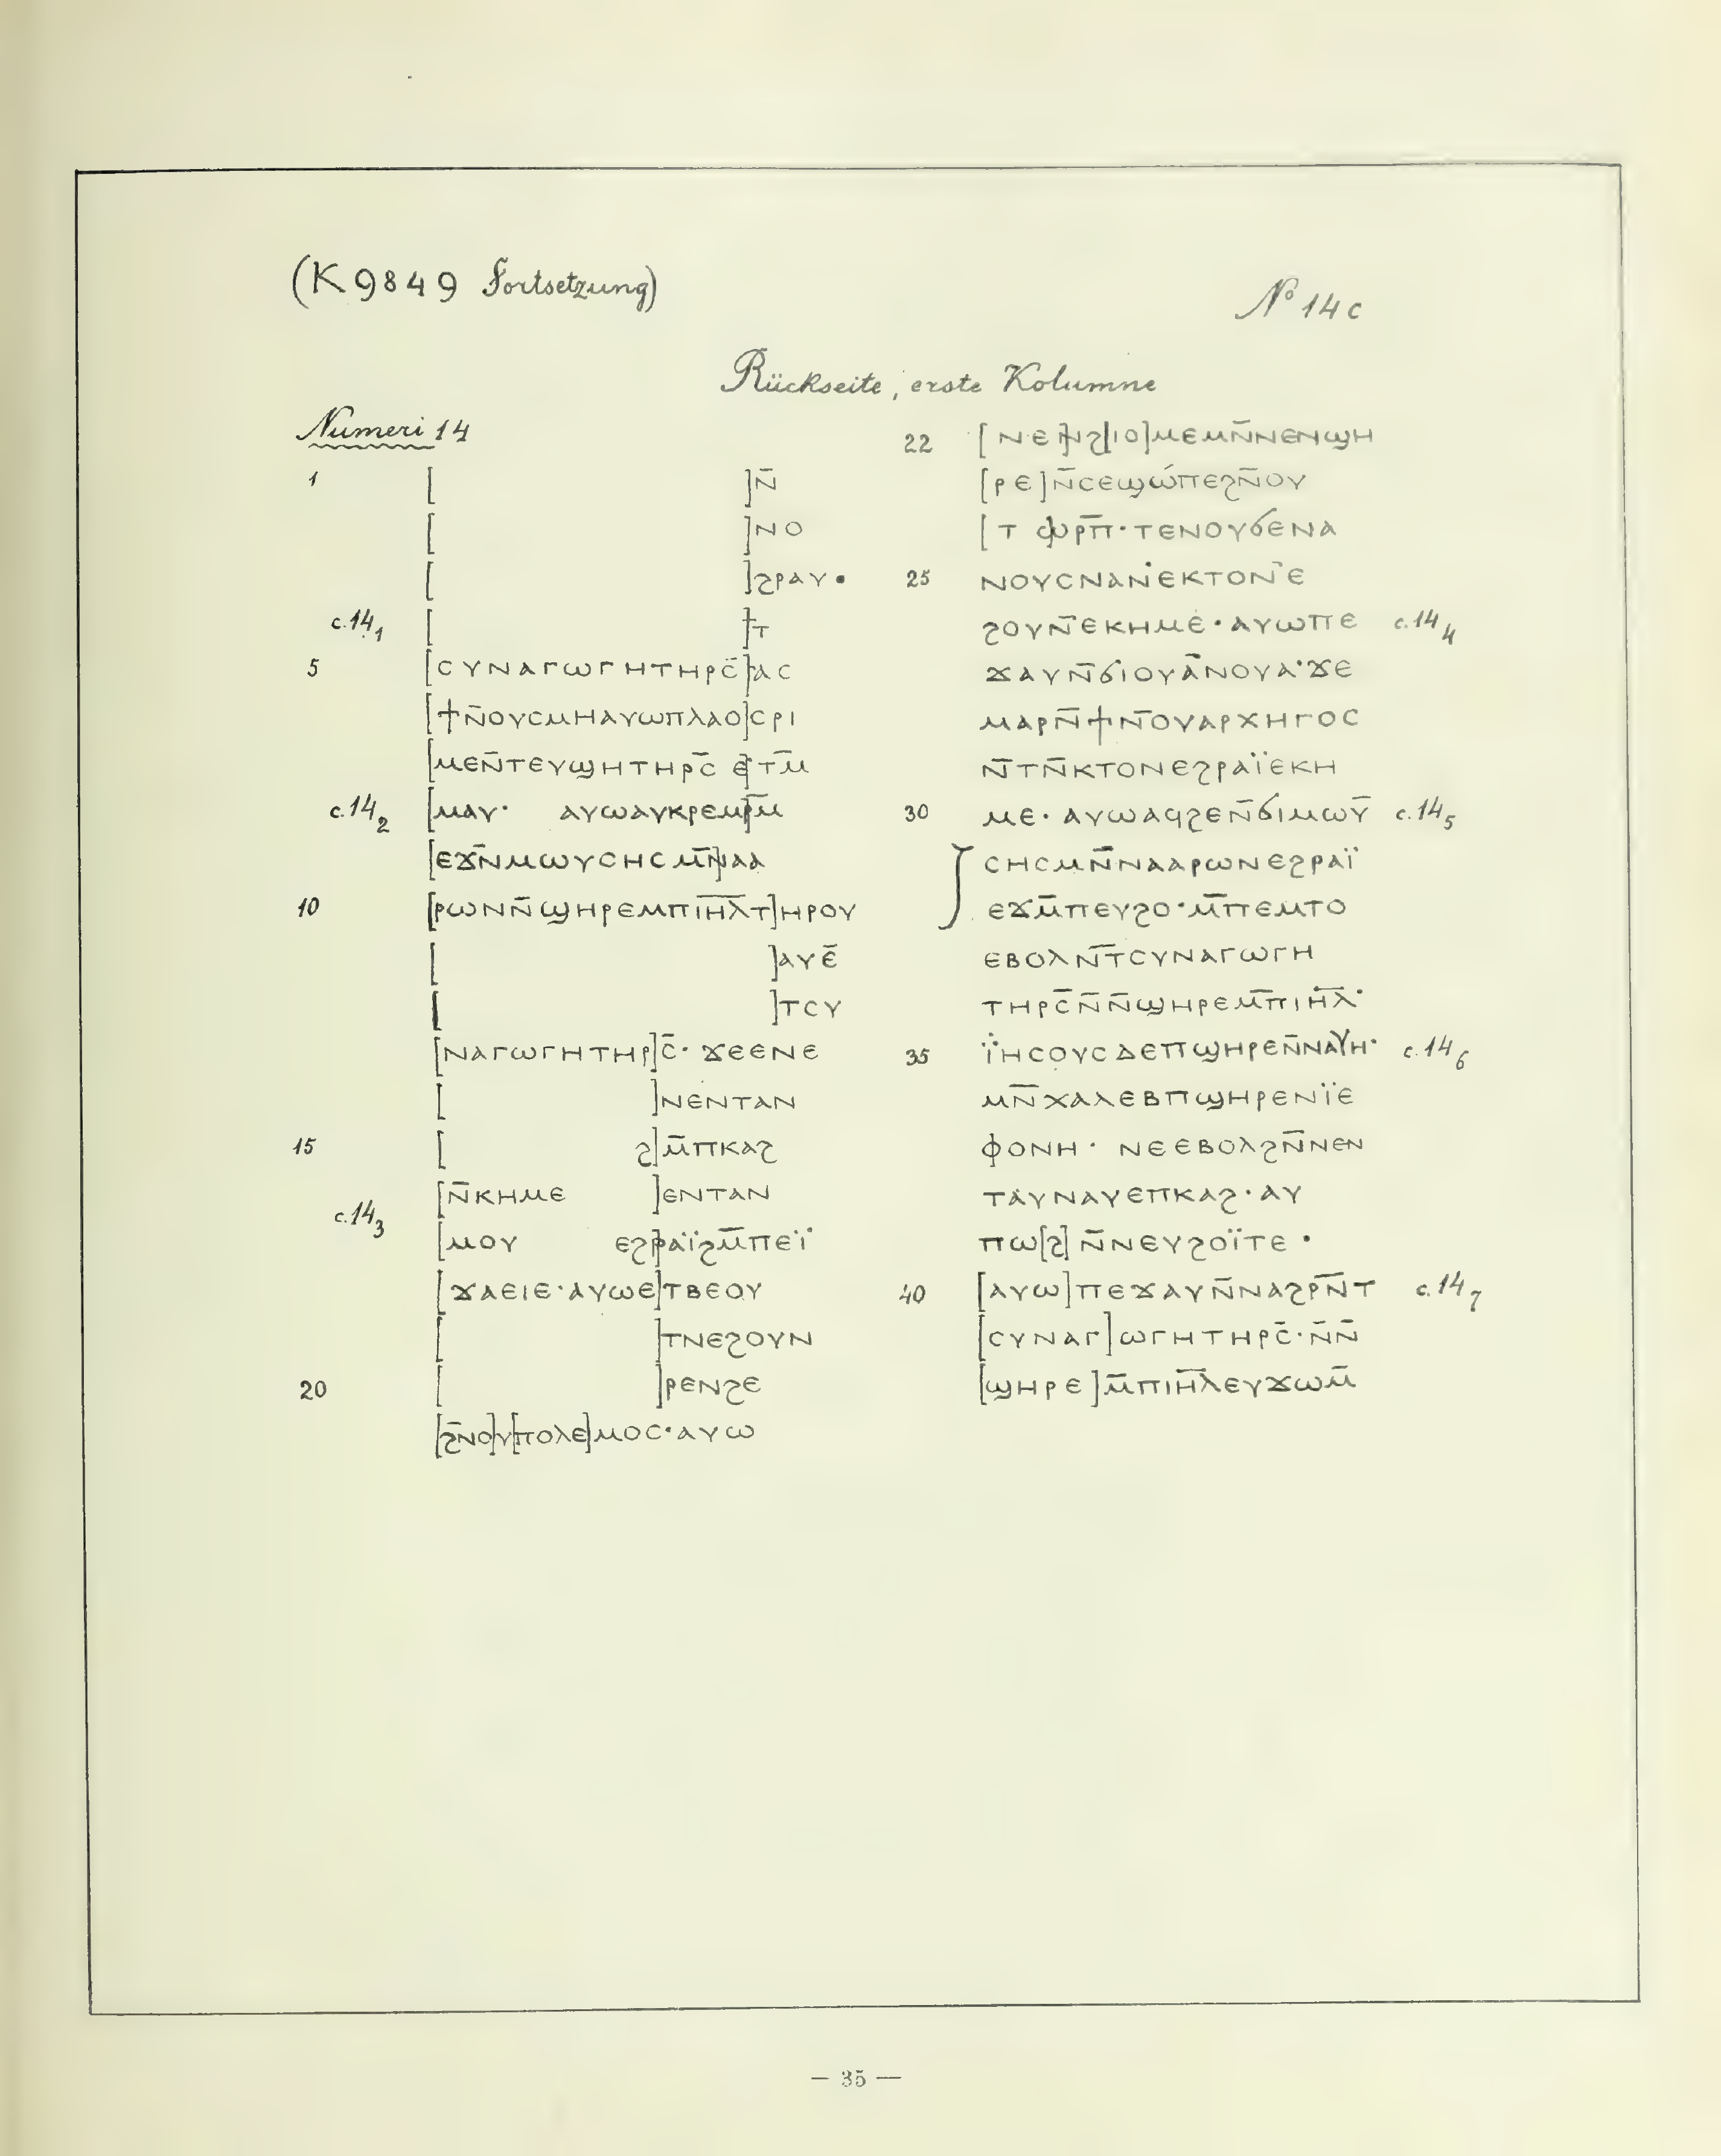 (K 9849 Fortsetzung)
No 14 c
Rückseite, erste Kolumne
Numeri 14
1 [ ]ⲛ̄
[ ]ⲛⲟ
[ ]ϩⲣⲁⲩ•
c.14₁ [ ]ⲧ
5 [ⲥⲩⲛⲁⲅⲱⲅⲏⲧⲏⲣⲥ̄]ⲁⲥ
[ϯⲛ̄ⲟⲩⲥⲙⲏⲁⲩⲱⲡⲗⲁⲟ]ⲥⲣⲓ
[ⲙⲉⲛ̄ⲧⲉⲩϣⲏⲧⲏⲣⲥ̄ ⲉ]ⲧⲙ̄
c.14₂ [ⲙⲁⲩ· ⲁⲩⲱⲁⲩⲕⲣⲉⲙⲣ]ⲙ̄
[ⲉϫⲛ̄ⲙⲱⲩⲥⲏⲥⲙⲛ̄]ⲁⲁ
10 [ⲣⲱⲛⲛ̄ϣⲏⲣⲉⲙⲡⲓ̄ⲏ̄ⲗ̄ⲧ]ⲏⲣⲟⲩ
[ ]ⲁⲩⲉ̄
[ ]ⲧⲥⲩ
[ⲛⲁⲅⲱⲅⲏⲧⲏⲣ]ⲥ̄· ϫⲉⲉⲛⲉ
[ ]ⲛⲉⲛⲧⲁⲛ
15 [ ϩ]ⲙ̄ⲡⲕⲁϩ
[ⲛ̄ⲕⲏⲙⲉ ]ⲉⲛⲧⲁⲛ
c.14₃ [ⲙⲟⲩ ⲉϩ]ⲣⲁⲓ̈ϩⲙ̄ⲡⲉⲓ̈
[ϫⲁⲉⲓⲉ·ⲁⲩⲱⲉ]ⲧⲃⲉⲟⲩ
[ ]ⲧⲛⲉϩⲟⲩⲛ
20 [ ]ⲣⲉⲛϩⲉ
[ϩ̄ⲛⲟ]ⲩ[ⲡⲟⲗⲉ]ⲙⲟⲥ·ⲁⲩⲱ
22 [ⲛⲉ]ⲛϩ[ⲓⲟ]ⲙⲉⲙⲛ̄ⲛⲉⲛϣⲏ
[ⲣⲉ]ⲛ̄ⲥⲉϣⲱ́ⲡⲉϩⲛ̄ⲟⲩ
[ⲧ ϣ]ⲱⲣⲡ̄·ⲧⲉⲛⲟⲩϭⲉⲛⲁ
25 ⲛⲟⲩⲥⲛⲁⲛ̇ⲉⲕⲧⲟⲛ̄ⲉ
ϩⲟⲩⲛ̄ⲉⲕⲏⲙⲉ·ⲁⲩⲱⲡⲉ c.14₄
ϫⲁⲩⲛ̄ϭⲓⲟⲩⲁ̄ⲛⲟⲩⲁ·ϫⲉ
ⲙⲁⲣⲛ̄ϯⲛ̄ⲟⲩⲁⲣⲭⲏⲅⲟⲥ
ⲛ̄ⲧⲛ̄ⲕⲧⲟⲛⲉϩⲣⲁⲓ̈ⲉⲕⲏ
30 ⲙⲉ·ⲁⲩⲱⲁϥϩⲉⲛ̄ϭⲓⲙⲱⲩ̄ c.14₅
ⲥⲏⲥⲙⲛ̄ⲛⲁⲁⲣⲱⲛⲉϩⲣⲁⲓ̈
ⲉϫⲙ̄ⲡⲉⲩϩⲟ·ⲙ̄ⲡⲉⲙⲧⲟ
ⲉⲃⲟⲗⲛ̄ⲧ̄ⲥⲩⲛⲁⲅⲱⲅⲏ
ⲧⲏⲣⲥ̄ⲛ̄ⲛ̄ϣⲏⲣⲉⲙ̄ⲡⲓⲏ̄ⲗ̄·
35 ⲓ̈ⲏⲥⲟⲩⲥⲇⲉⲡϣⲏⲣⲉⲛ̄ⲛⲁⲩⲏ· c.14₆
ⲙⲛ̄ⲭⲁⲗⲉⲃⲡϣⲏⲣⲉⲛⲓ̈ⲉ
ⲫⲟⲛⲏ· ⲛⲉⲉⲃⲟⲗϩⲛ̄ⲛⲉⲛ
ⲧⲁⲩⲛⲁⲩⲉⲡⲕⲁϩ·ⲁⲩ
ⲡⲱ[ϩ]ⲛ̄ⲛⲉⲩϩⲟⲓ̈ⲧⲉ·
40 [ⲁⲩⲱ]ⲡⲉϫⲁⲩⲛ̄ⲛⲁϩⲣⲛ̄ⲧ c.14₇
[ⲥⲩⲛⲁⲅ]ⲱⲅⲏⲧⲏⲣⲥ̄·ⲛ̄ⲛ̄
[ϣⲏⲣⲉ]ⲙ̄ⲡⲓⲏ̄ⲗ̄ⲉⲩϫⲱⲙ̄
— 35 —